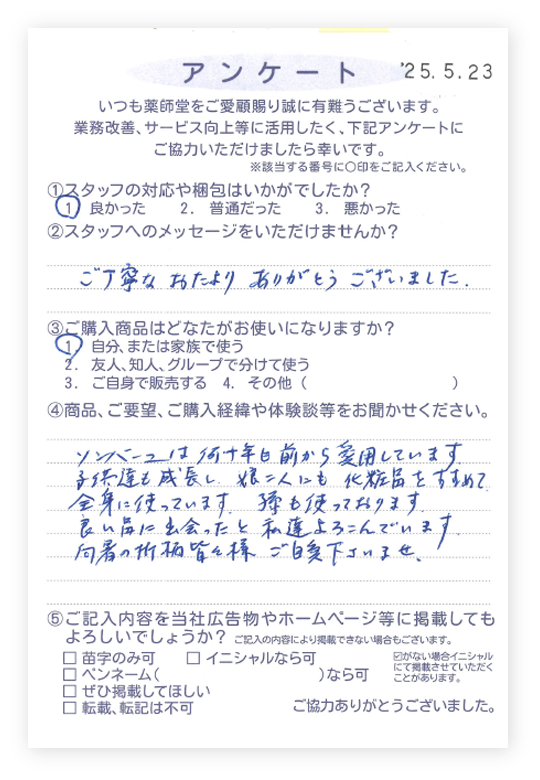 アンケート
'25.5.23
いつも薬師堂をご愛顧賜り誠に有難うございます。
業務改善、サービス向上等に活用したく、下記アンケートに
ご協力いただけましたら幸いです。
※該当する番号に○印をご記入ください。
①スタッフの対応や梱包はいかがでしたか?
1 良かった 2. 普通だった 3. 悪かった
②スタッフへのメッセージをいただけませんか?
ご丁寧な おたより ありがとう ございました.
③ご購入商品はどなたがお使いになりますか?
1 自分、または家族で使う
2. 友人、知人、グループで分けて使う
3. ご自身で販売する 4. その他 ( )
④商品、ご要望、ご購入経緯や体験談等をお聞かせください。
ソンバーユは何十年日前から愛用しています
子供達も成長し 娘二人にも 化粧品をすすめて
全身に使っています 孫も使っております
良い品に出会ったと 私達よろこんでいます
向暑の折柄皆々様 ご自愛下さいませ.
⑤ご記入内容を当社広告物やホームページ等に掲載しても
よろしいでしょうか? ご記入の内容により掲載できない場合もございます。
□ 苗字のみ可 □ イニシャルなら可
□ ペンネーム( )なら可
□ ぜひ掲載してほしい
□ 転載、転記は不可
☑がない場合イニシャル
にて掲載させていただく
ことがあります。
ご協力ありがとうございました。